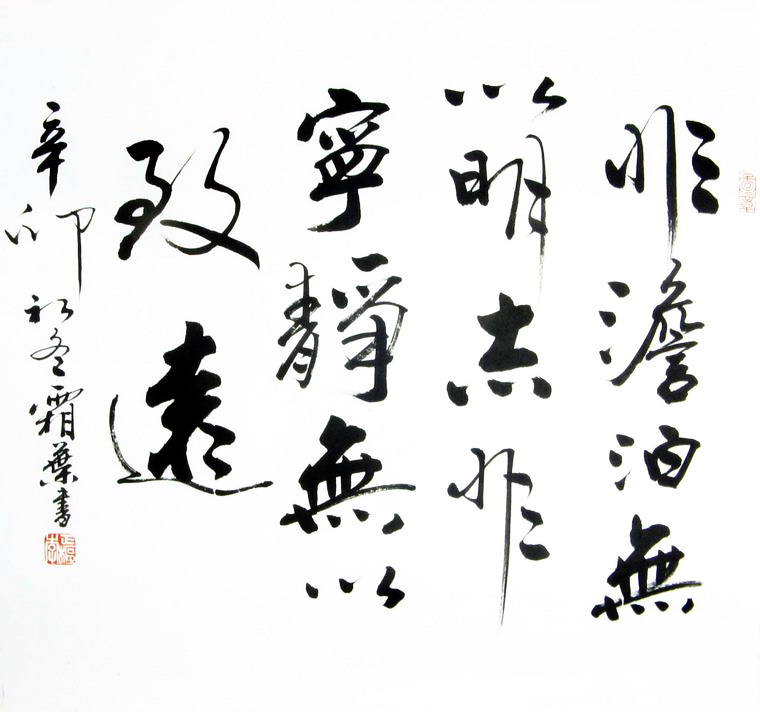 非澹泊無
以明志非
寧靜無以
致遠
辛卯初冬霜葉書